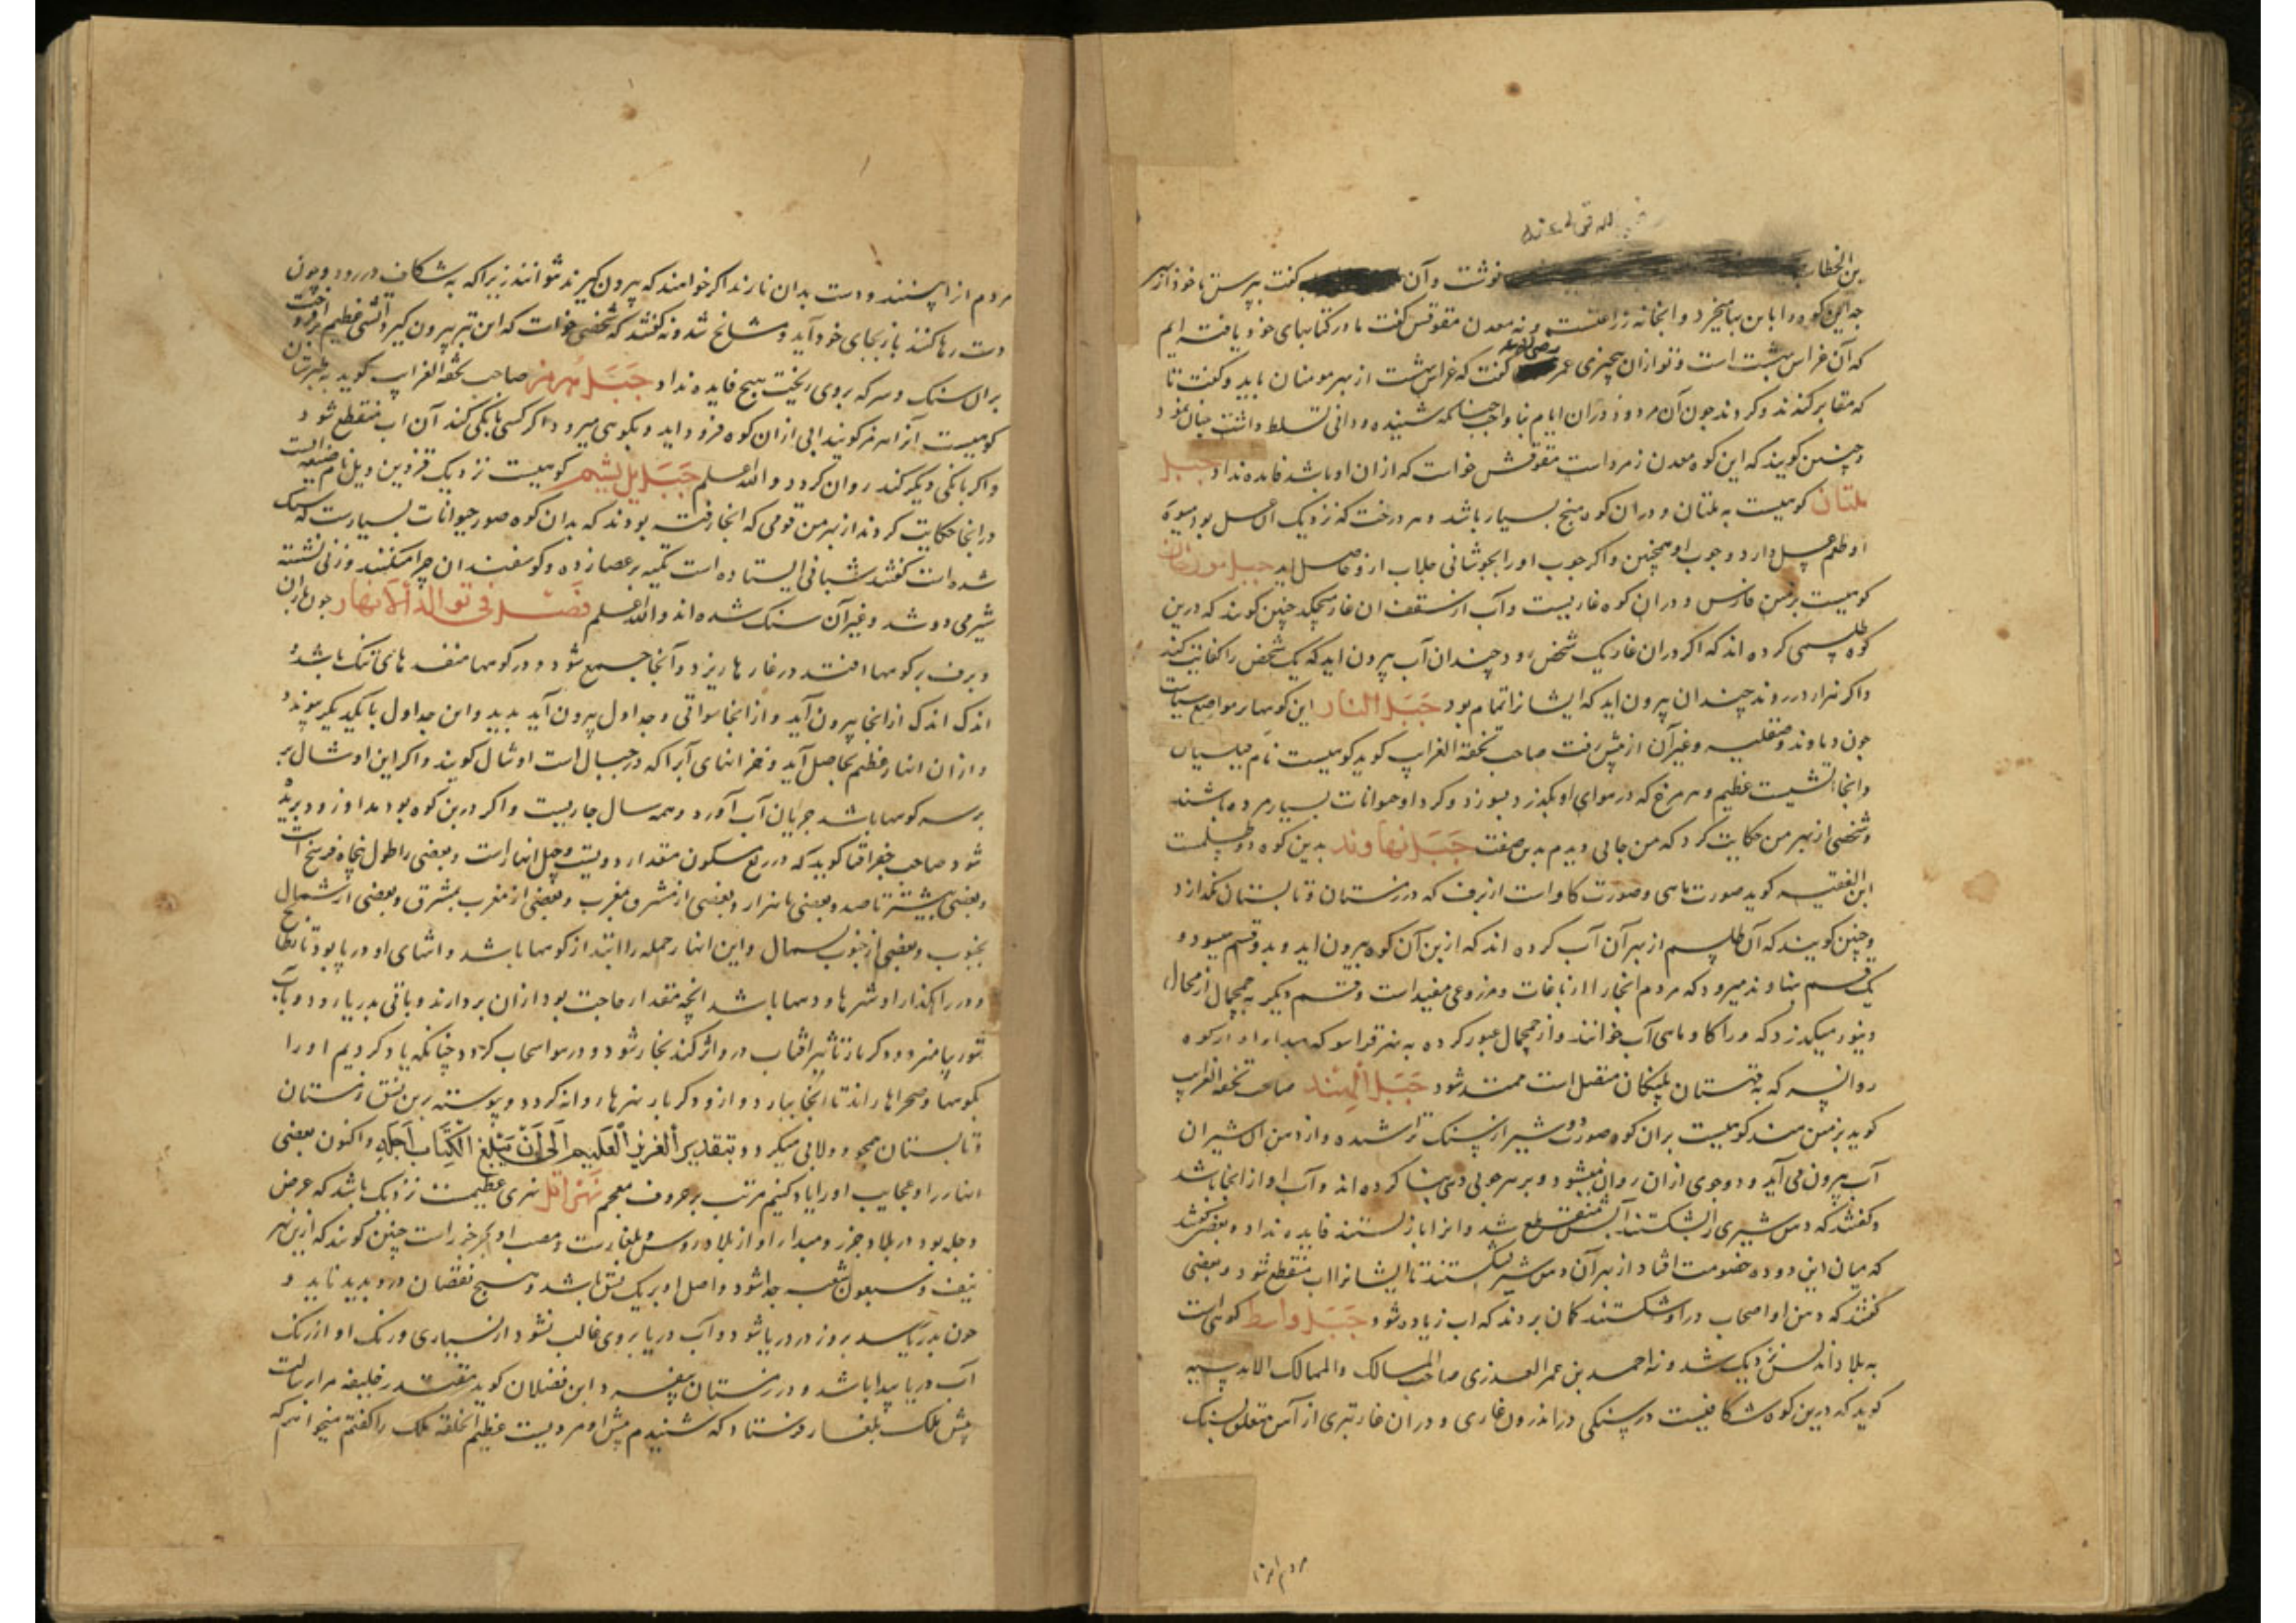 رضی الله تعالی عنه
بن الخطاب نوشت و آن کفت بپرس تا خود از بهر
جه این کوه را باین بها میخرد و آنجا نه زراعتست و نه معدن مقوقس کفت ما در کتابهای خود یافته ایم
که آن غراس بهشت است و عمر رضی الله عنه کفت که غراس بهشت از بهر مومنان باید و کفت تا
که مقابر کنند و کردند چون آن مرد در آن ایام شنیده و تسلط داشت
و چنین کویند که این کوه معدن زمرد است مقوقس خواست که از آن او باشد فایده نداد جبل
ملتان کوهیست به ملتان و در آن کوه منج بسیار باشد و هر درخت که نزدیک آن عسل بود میوه
او طعم عسل دارد و چوب او همچنین و اکر چوب او را بجوشانی جلاب ازو حاصل اید جبل
کوهیست بزمین فارس و در ان کوه غاریست و آب از سقف ان غار میچکد چنین کویند که درین
کوه طلسمی کرده اند که اکر در ان غار یک شخص رود چندان آب بیرون اید که یک شخص را کفایت کند
و اکر هزار در روند چندان بیرون اید که ایشانرا تمام بود جَبَل النار این کوهها در مواضع بسیارست
چون دماوند و صقلیه و غیر آن از پیش رفت صاحب تحفة الغرایب کوید کوهیست نام
و انجا آتشیست عظیم و هر مرغ که در هوای او بکذرد بسوزد و کرد او حیوانات بسیار مرده باشند
و شخصی از بهر من حکایت کرد که من جایی دیدم بدین صفت جَبَل نهاوند بدین کوه دو طلسمست
ابن الفقیه کوید صورت ماهی و صورت کاو است از برف که در زمستان و تابستان نکدازد
و چنین کویند که آن طلسم از بهر آن آب کرده اند که از بن آن کوه بیرون اید و بدو قسم میشود و
یک قسم بنهاوند میرود که مردم انجا را از باغات و مزروعی مفید است و قسم دیکر به
دینور میکذرد که و را کاو ماهی آب خوانند و از عبور کرده به نهر که مبداء او از کوه
که به قهستان متصل است ممتد شود جَبَل الهند صاحب تحفة الغرایب
کوید بزمین هند کوهیست بران کوه صورت دو شیر از سنک تراشیده و از دهن ان شیران
آب بیرون می آید و دو جوی از ان روان میشود و بر هر جوی دهی بنا کرده اند و آب او از انجا باشد
و کفتند که دهن شیری را بشکستند آبش منقطع شد و انرا باز بستند فایده نداد و بعضی کفتند
که میان این دو ده خصومت افتاد از بهر آن دهن شیر بشکستند تا ایشانرا اب منقطع شود و بعضی
کفتند که دهن او اصحاب او شکستند کمان بردند که اب زیاده شود جَبَل واسط کوهی است
به بلاد اندلس نزدیک شدونه احمد بن عمر العذری صاحب المسالک والممالک الاندلسیه
کوید که درین کوه شکافیست در سنکی در اندرون غاری و در ان غار تبری از آهن متعلق بسنک
مردم از
مردم از ا بینند و دست بدان نارند اکر خواهند که بیرون کیرند نتوانند زیرا که به شکاف در رود و چون
دست رها کنند باز بجای خود آید و مشایخ شدونه کفتند که شخصی خواست که این تبر بیرون کیرد آتشی عظیم افروخت
بران سنک و سرکه بروی ریخت هیچ فایده نداد جَبَل هرمز صاحب تحفة الغرایب کوید به طبرستان
کوهیست آنرا هرمز کویند ابی از ان کوه فرود اید و بکوهی میرود اکر کسی بانکی کند آن اب منقطع شود
و اکر بانکی دیکر کند روان کردد والله اعلم جَبَل یل بشیم کوهیست نزدیک قزوین و یل نام ضیعه است
در انجا حکایت کردند از بهر من قومی که انجا رفته بودند که بدان کوه صور حیوانات بسیارست که سنک
شده است کفتند شبانی ایستاده است تکیه بر عصا زده و کوسفندان چرا میکنند و زنی نشسته
شیر می دوشد و غیر آن سنک شده اند والله اعلم فَصْل فی تولد الانهار چون باران
و برف بر کوهها افتند در غارها ریزد و آنجا جمع شود و در کوهها منفدهای تنک باشد و
اندک اندک از انجا بیرون آید و از انجا سواقی و جداول بیرون آید پدید و این جداول با یکدیکر پیوندد
و از ان انهار عظیم بحاصل آید و خزانهای آب را که در جبال است اوشال کویند و اکر این اوشال بر
بر سر کوهها باشد جریان آب آورد و همه سال جاریست و اکر در بن کوه بود مداد زود بریده
شود صاحب جغرافیا کوید که در ربع مسکون مقدار دویست و چهل انهار است و بعضی را طول پنجاه فرسخ است
و بعضی بیشتر تا صد و بعضی تا هزار و بعضی از مشرق بمغرب و بعضی از مغرب بمشرق و بعضی از شمال
بجنوب و بعضی از جنوب بشمال و این انهار جمله را ابتدا از کوهها باشد و انتهای او دریا بود تا بطایح
و در راهکذار او شهرها و دیهها باشد انچه مقدار حاجت بود ازان بردارند و باقی بدریا رود و باب
شور بیامیزد و دکر باز تاثیر افتاب درو اثر کند بخار شود و در هوا سحاب کردد چنانکه یاد کردیم او را
بکوهها و صحراها راند تا انجا ببارد و ازو دکر بار نهرها روانه کردد و پیوسته برین نسق زمستان
و تابستان همچو دولابی میکردد و بتقدیر العزیز العلیم الی ان یبلغ الکتاب اجله و اکنون بعضی
انهار را و عجایب او را یاد کنیم مرتب بر حروف معجم نهر اتل نهری عظیمست نزدیک باشد که عرض
دجله بود در بلاد خزر و مبداء او از بلاد روس و بلغارست و مصب او بحر خزر است چنین کویند که ازین نهر
نیف و سبعون شعبه جدا شود و اصل او بر یک نسق باشد و هیچ نقصان درو پدید ناید و
چون بدریا رسد دو روز در دریا شود و آب دریا بروی غالب نشود از بسیاری و رنک او از رنک
آب دریا پیدا باشد و در زمستان بیفسرد و ابن فضلان کوید مقتدر خلیفه مرا رسالت
پیش ملک بلغار فرستاد که شنیدم پیش او مردیست عظیم الخلقه ملک را کفتم میخواهم که